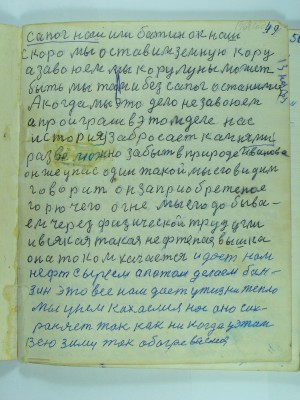 49
сапог нам или ботинок нам
скоро мы оставим земную кору
а завоюем мы кору луны может
быть мы там и без сапог останимся
А когда мы это дело незавоюем
а проиграем в этом деле нас
история забросает камнями
разве можно забыть в природе Иванова
он же у нас один такой мысловидим
говорит он за приобретеное
горючего огне. мы его добыва-
ем через физической труд угли
и всякая такая нефтеная вышка
она током касается и дает нам
нефть сырьем а потом делаем бен-
зин это все нам дает у жизни тепло
мы у нем кахаемся нас оно сох-
раняет так как ни когда у этом
всю зиму так обогреваемся